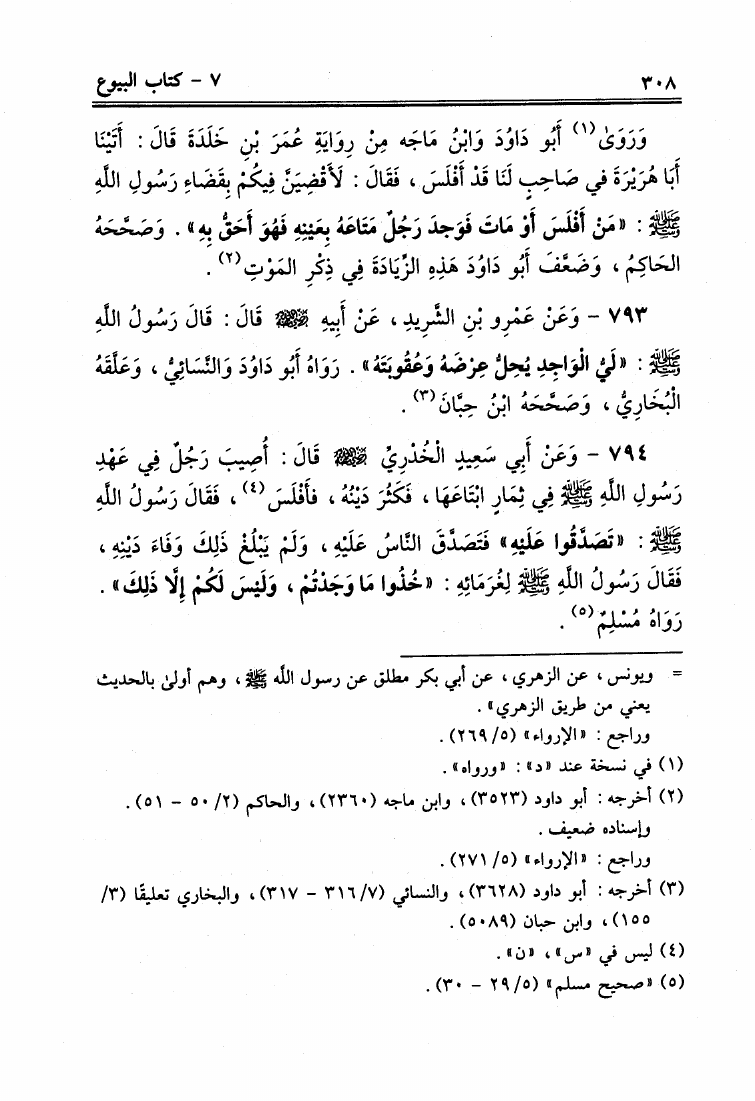 ٣٠٨ ٧ - كتاب البيوع
وَرَوَىٰ(١) أَبُو دَاوُدَ وَابْنُ مَاجَه مِنْ رِوَايَةِ عُمَرَ بْنِ خَلَدَةَ قَالَ : أَتَيْنَا
أَبَا هُرَيْرَةَ في صَاحِبٍ لَنَا قَدْ أَفْلَسَ ، فَقَالَ : لَأَقْضِيَنَّ فِيكُمْ بِقَضَاءِ رَسُولِ اللَّهِ
ﷺ : «مَنْ أَفْلَسَ أَوْ مَاتَ فَوَجدَ رَجُلٌ مَتَاعَهُ بِعَيْنِهِ فَهُوَ أَحَقُّ بِهِ» . وَصَحَّحَهُ
الحَاكِمُ ، وَضَعَّفَ أَبُو دَاوُدَ هَذِهِ الزِّيَادَةَ فِي ذِكْرِ المَوْتِ(٢) .
٧٩٣ - وَعَنْ عَمْرِو بْنِ الشَّرِيدِ ، عَنْ أَبِيهِ ﷺ قَالَ : قَالَ رَسُولُ اللَّهِ
ﷺ : «لَيُّ الْوَاجِدِ يُحِلُّ عِرْضَهُ وَعُقُوبَتَهُ» . رَوَاهُ أَبُو دَاوُدَ وَالنَّسَائِيُّ ، وَعَلَّقَهُ
الْبُخَارِيُّ ، وَصَحَّحَهُ ابْنُ حِبَّانَ(٣) .
٧٩٤ - وَعَنْ أَبِي سَعِيدٍ الْخُدْرِيِّ ﷺ قَالَ : أُصِيبَ رَجُلٌ فِي عَهْدِ
رَسُولِ اللَّهِ ﷺ فِي ثِمَارٍ ابْتَاعَهَا ، فَكَثُرَ دَيْنُهُ ، فأَفْلَسَ(٤) ، فَقَالَ رَسُولُ اللَّهِ
ﷺ : «تَصَدَّقُوا عَلَيْهِ» فَتَصَدَّقَ النَّاسُ عَلَيْهِ ، وَلَمْ يَبْلُغْ ذَلِكَ وَفَاءَ دَيْنِهِ ،
فَقَالَ رَسُولُ اللَّهِ ﷺ لِغُرَمَائِهِ : «خُذُوا مَا وَجَدْتُمْ ، وَلَيْسَ لَكُمْ إِلَّا ذَلِكَ» .
رَوَاهُ مُسْلِمٌ(٥) .
= ويونس ، عن الزهري ، عن أبي بكر مطلق عن رسول اللَّه ﷺ ، وهم أولىٰ بالحديث
يعني من طريق الزهري» .
وراجع : «الإرواء» (٥/ ٢٦٩) .
(١) في نسخة عند «د» : «ورواه» .
(٢) أخرجه : أبو داود (٣٥٢٣) ، وابن ماجه (٢٣٦٠) ، والحاكم (٢/ ٥٠ - ٥١) .
وإسناده ضعيف .
وراجع : «الإرواء» (٥/ ٢٧١) .
(٣) أخرجه : أبو داود (٣٦٢٨) ، والنسائي (٧/ ٣١٦ - ٣١٧) ، والبخاري تعليقًا (٣/
١٥٥) ، وابن حبان (٥٠٨٩) .
(٤) ليس في «س» ، «ن» .
(٥) «صحيح مسلم» (٥/ ٢٩ - ٣٠) .